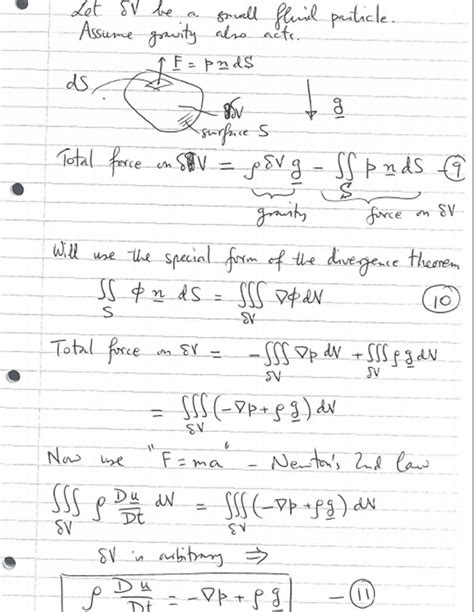 Let δV be a small fluid particle.
Assume gravity also acts.
F = p n dS
dS
δV
g
surface S
Total force on δV = ρ δV g − ∬_S p n dS — 9
gravity force on δV
Will use the special form of the divergence theorem
∬_S ϕ n dS = ∭_δV ∇ϕ dV 10
Total force on δV = −∭_δV ∇p dV + ∭_δV ρ g dV
= ∭_δV (−∇p + ρ g) dV
Now use "F = ma" – Newton's 2nd law
∭_δV ρ Du/Dt dV = ∭_δV (−∇p + ρ g) dV
δV is arbitrary ⇒
ρ Du/Dt = −∇p + ρ g — 11